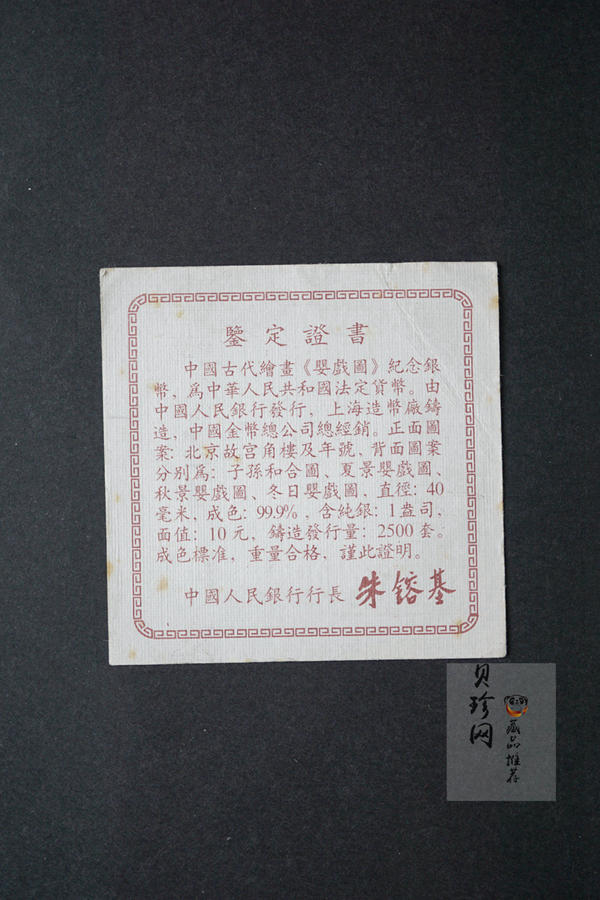 鑒定證書
中國古代繪畫《嬰戲圖》紀念銀
幣，爲中華人民共和國法定貨幣。由
中國人民銀行發行，上海造幣廠鑄
造，中國金幣總公司總經銷。正面圖
案：北京故宮角樓及年號，背面圖案
分别爲：子孫和合圖、夏景嬰戲圖、
秋景嬰戲圖、冬日嬰戲圖，直徑：40
毫米，成色：99.9%，含純銀：1盎司，
面值：10元，鑄造發行量：2500套。
成色標准，重量合格，謹此證明。
中國人民銀行行長 朱鎔基
贝珍网
藏品推荐